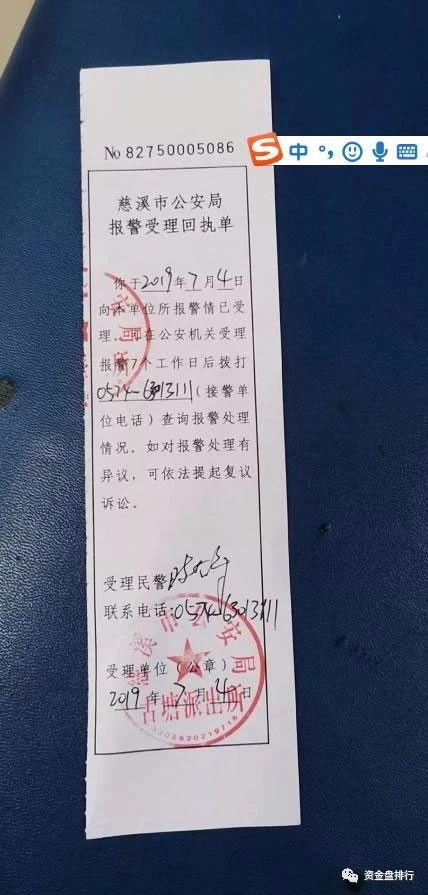 No 82750005086
中
慈溪市公安局
报警受理回执单
你于2019年7月4日
向本单位所报警情已受
理，可在公安机关受理
报警7个工作日后拨打
0574-63013111(接警单
位电话)查询报警处理
情况。如对报警处理有
异议，可依法提起复议
诉讼。
受理民警
联系电话:0574-63013111
受理单位(公章)
2019年7月4日
慈溪市公安局
古塘派出所
3302820219718
资金盘排行